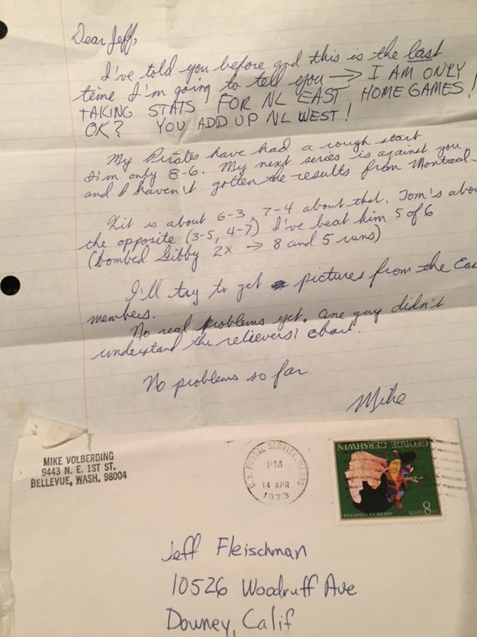 Dear Jeff,
I've told you before and this is the last
time I'm going to tell you → I AM ONLY
TAKING STATS FOR NL EAST HOME GAMES!
OK? YOU ADD UP NL WEST!
My Pirates have had a rough start
I'm only 8-6. My next series is against you
and I haven't gotten the results from Montreal-
Kit is about 6-3, 7-4 about that. Tom's abou
the opposite (3-5, 4-7) I've beat him 5 of 6
(bombed Gibby 2X → 8 and 5 runs)
I'll try to get pictures from the Eas
members.
No real problems yet. One guy didn't
understand the relievers' chart.
No problems so far
Mike
MIKE VOLBERDING
9443 N. E. 1ST ST.
BELLEVUE, WASH. 98004
U.S. POSTAL SERVICE
PM
14 APR
1973
GEORGE GERSHWIN
AMERICAN COMPOSER
8 CENTS
Jeff Fleischman
10526 Woodruff Ave
Downey, Calif